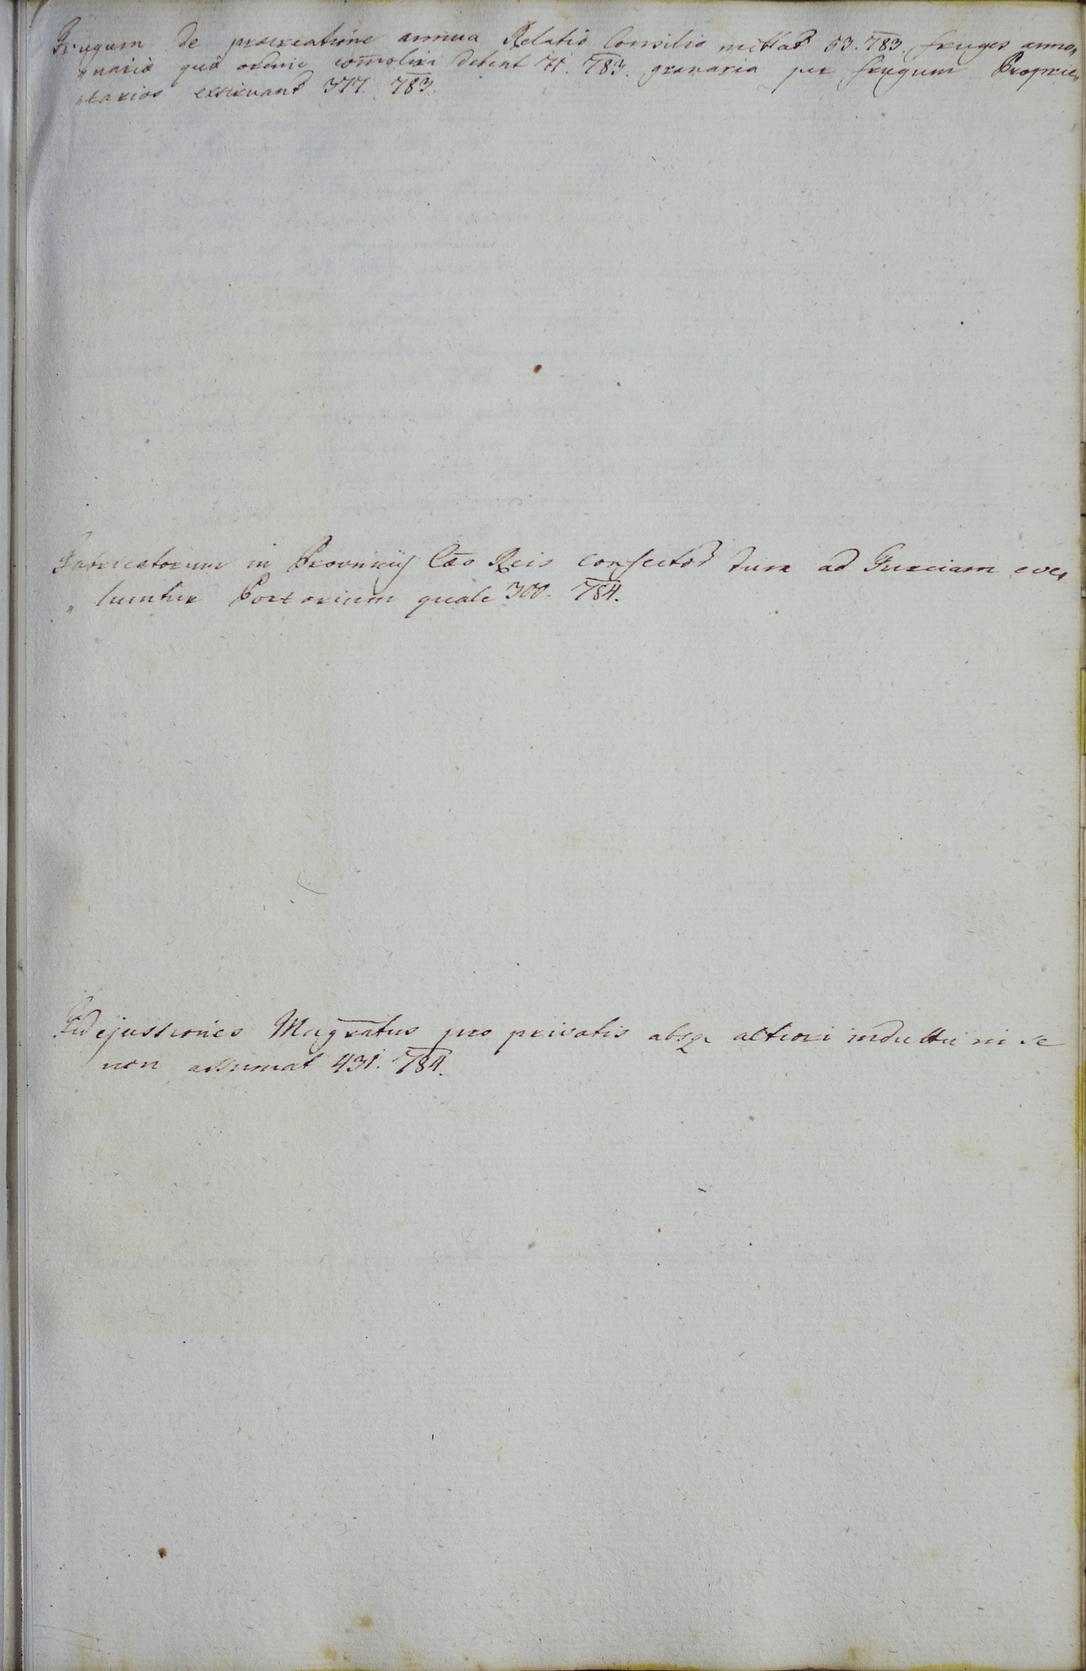 Frugum de procreatione annua Relatio Consilio mittatr 53. 783. fruges anno„
„naria qua ordine comolixi debent 71. 783. granaria per frugum Proprie„
„tarios exstruant 377. 783.
Fabricatorum in Provinciis Cæo Reis confector dum ad Turciam eve„
„huntur Portorium quale 300. 784.
Fidejussiones Magratus pro privatis absq altiori indultu in se
non assumat 431. 784.